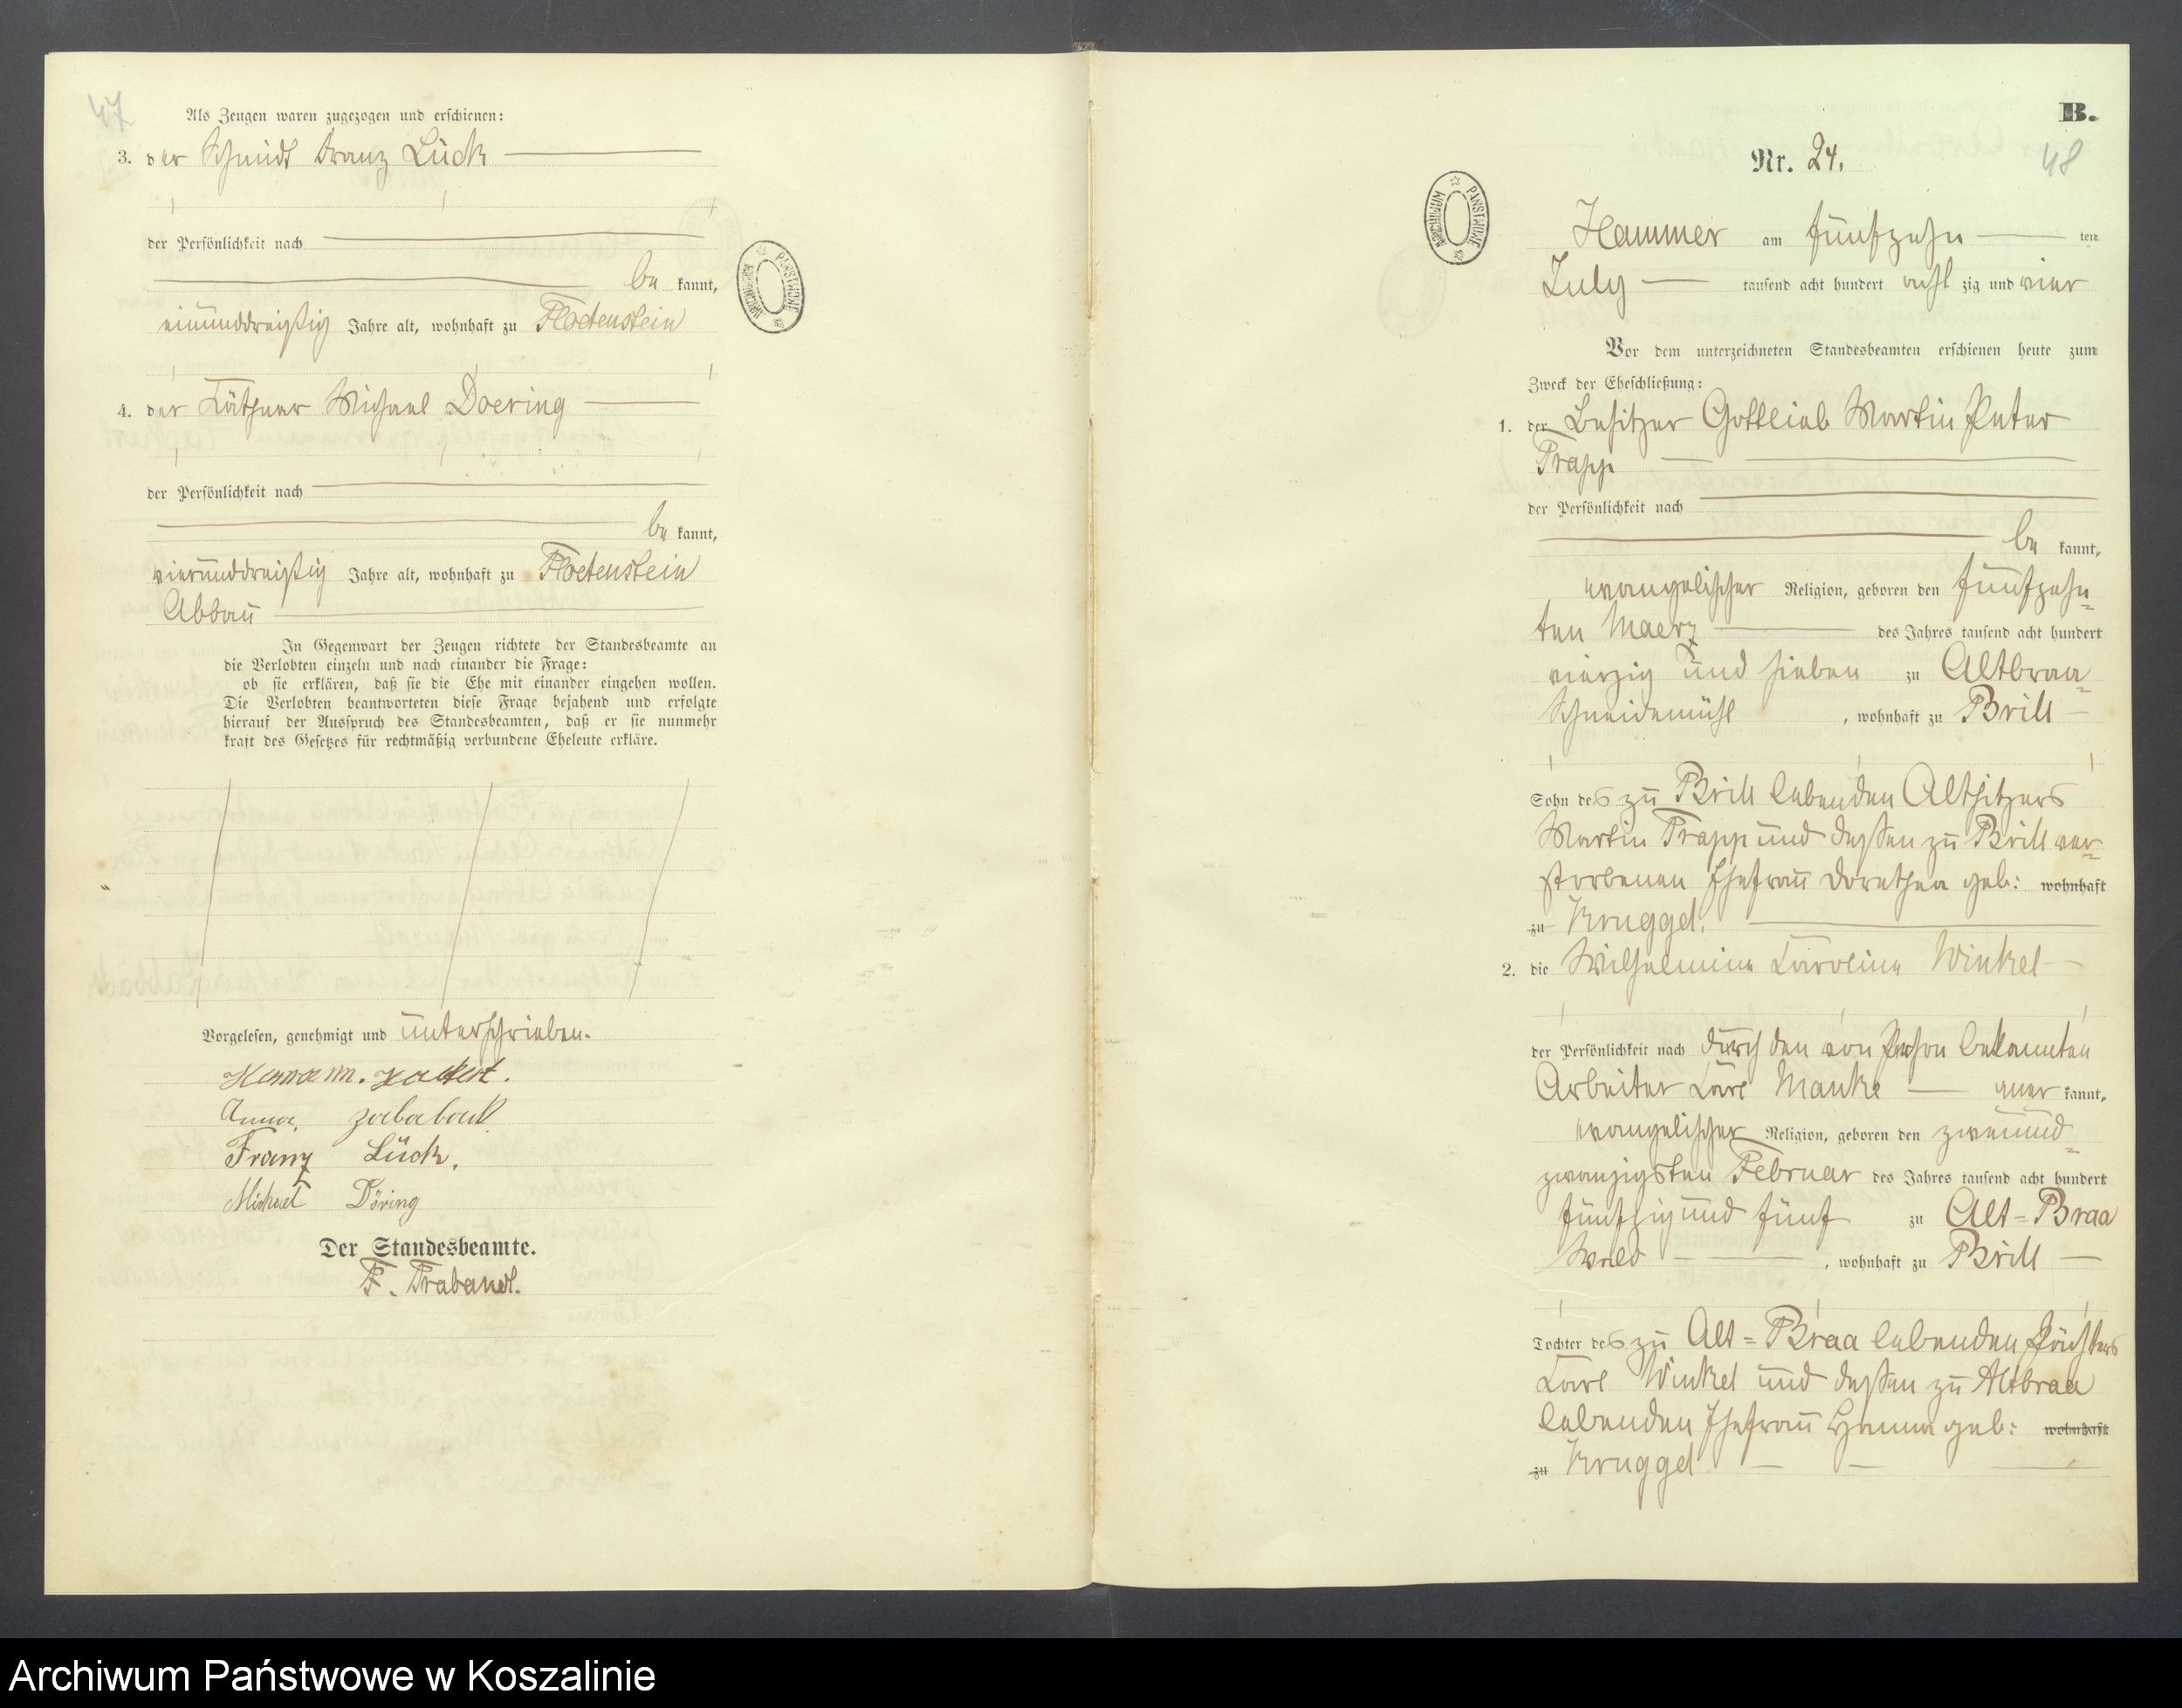 47
Als Zeugen waren zugezogen und erschienen:
3. der Schmidt Franz Lück
der Persönlichkeit nach
be kannt,
einunddreißig Jahre alt, wohnhaft zu Floetenstein
4. der Käthner Michael Doering
der Persönlichkeit nach
be kannt,
vierunddreißig Jahre alt, wohnhaft zu Floetenstein
Abbau
In Gegenwart der Zeugen richtete der Standesbeamte an
die Verlobten einzeln und nach einander die Frage:
ob sie erklären, daß sie die Ehe mit einander eingehen wollen.
Die Verlobten beantworteten diese Frage bejahend und erfolgte
hierauf der Ausspruch des Standesbeamten, daß er sie nunmehr
kraft des Gesetzes für rechtmäßig verbundene Eheleute erkläre.
Vorgelesen, genehmigt und unterschrieben.
Hermann
Anna
Franz Lück.
Michael Döring
Der Standesbeamte.
F. Trabandt.
ARCHIWUM PAŃSTWOWE
B.
Nr. 24.
48
ARCHIWUM PAŃSTWOWE
Hammer am fünfzehn ten
July tausend acht hundert acht zig und vier
Vor dem unterzeichneten Standesbeamten erschienen heute zum
Zweck der Eheschließung:
1. der Besitzer Gottlieb Martin Peter
Trapp
der Persönlichkeit nach
be kannt,
evangelischer Religion, geboren den fünfzehn-
ten Maerz des Jahres tausend acht hundert
vierzig und sieben zu Altbraa-
Schneidemühl, wohnhaft zu Brill
Sohn des zu Brill lebenden Altsitzers
Martin Trapp und dessen zu Brill ver-
storbenen Ehefrau Dorothea geb: wohnhaft
zu Kruggel.
2. die Wilhelmine Caroline Winkel
der Persönlichkeit nach durch den von Person bekannten
Arbeiter Carl Manke aner kannt,
evangelischer Religion, geboren den zweiund-
zwanzigsten Februar des Jahres tausend acht hundert
fünfzig und fünf zu Alt-Braa
Wald, wohnhaft zu Brill
Tochter des zu Alt-Braa lebenden Pächters
Carl Winkel und dessen zu Altbraa
lebenden Ehefrau Hanna geb: wohnhaft
zu Kruggel
Archiwum Państwowe w Koszalinie